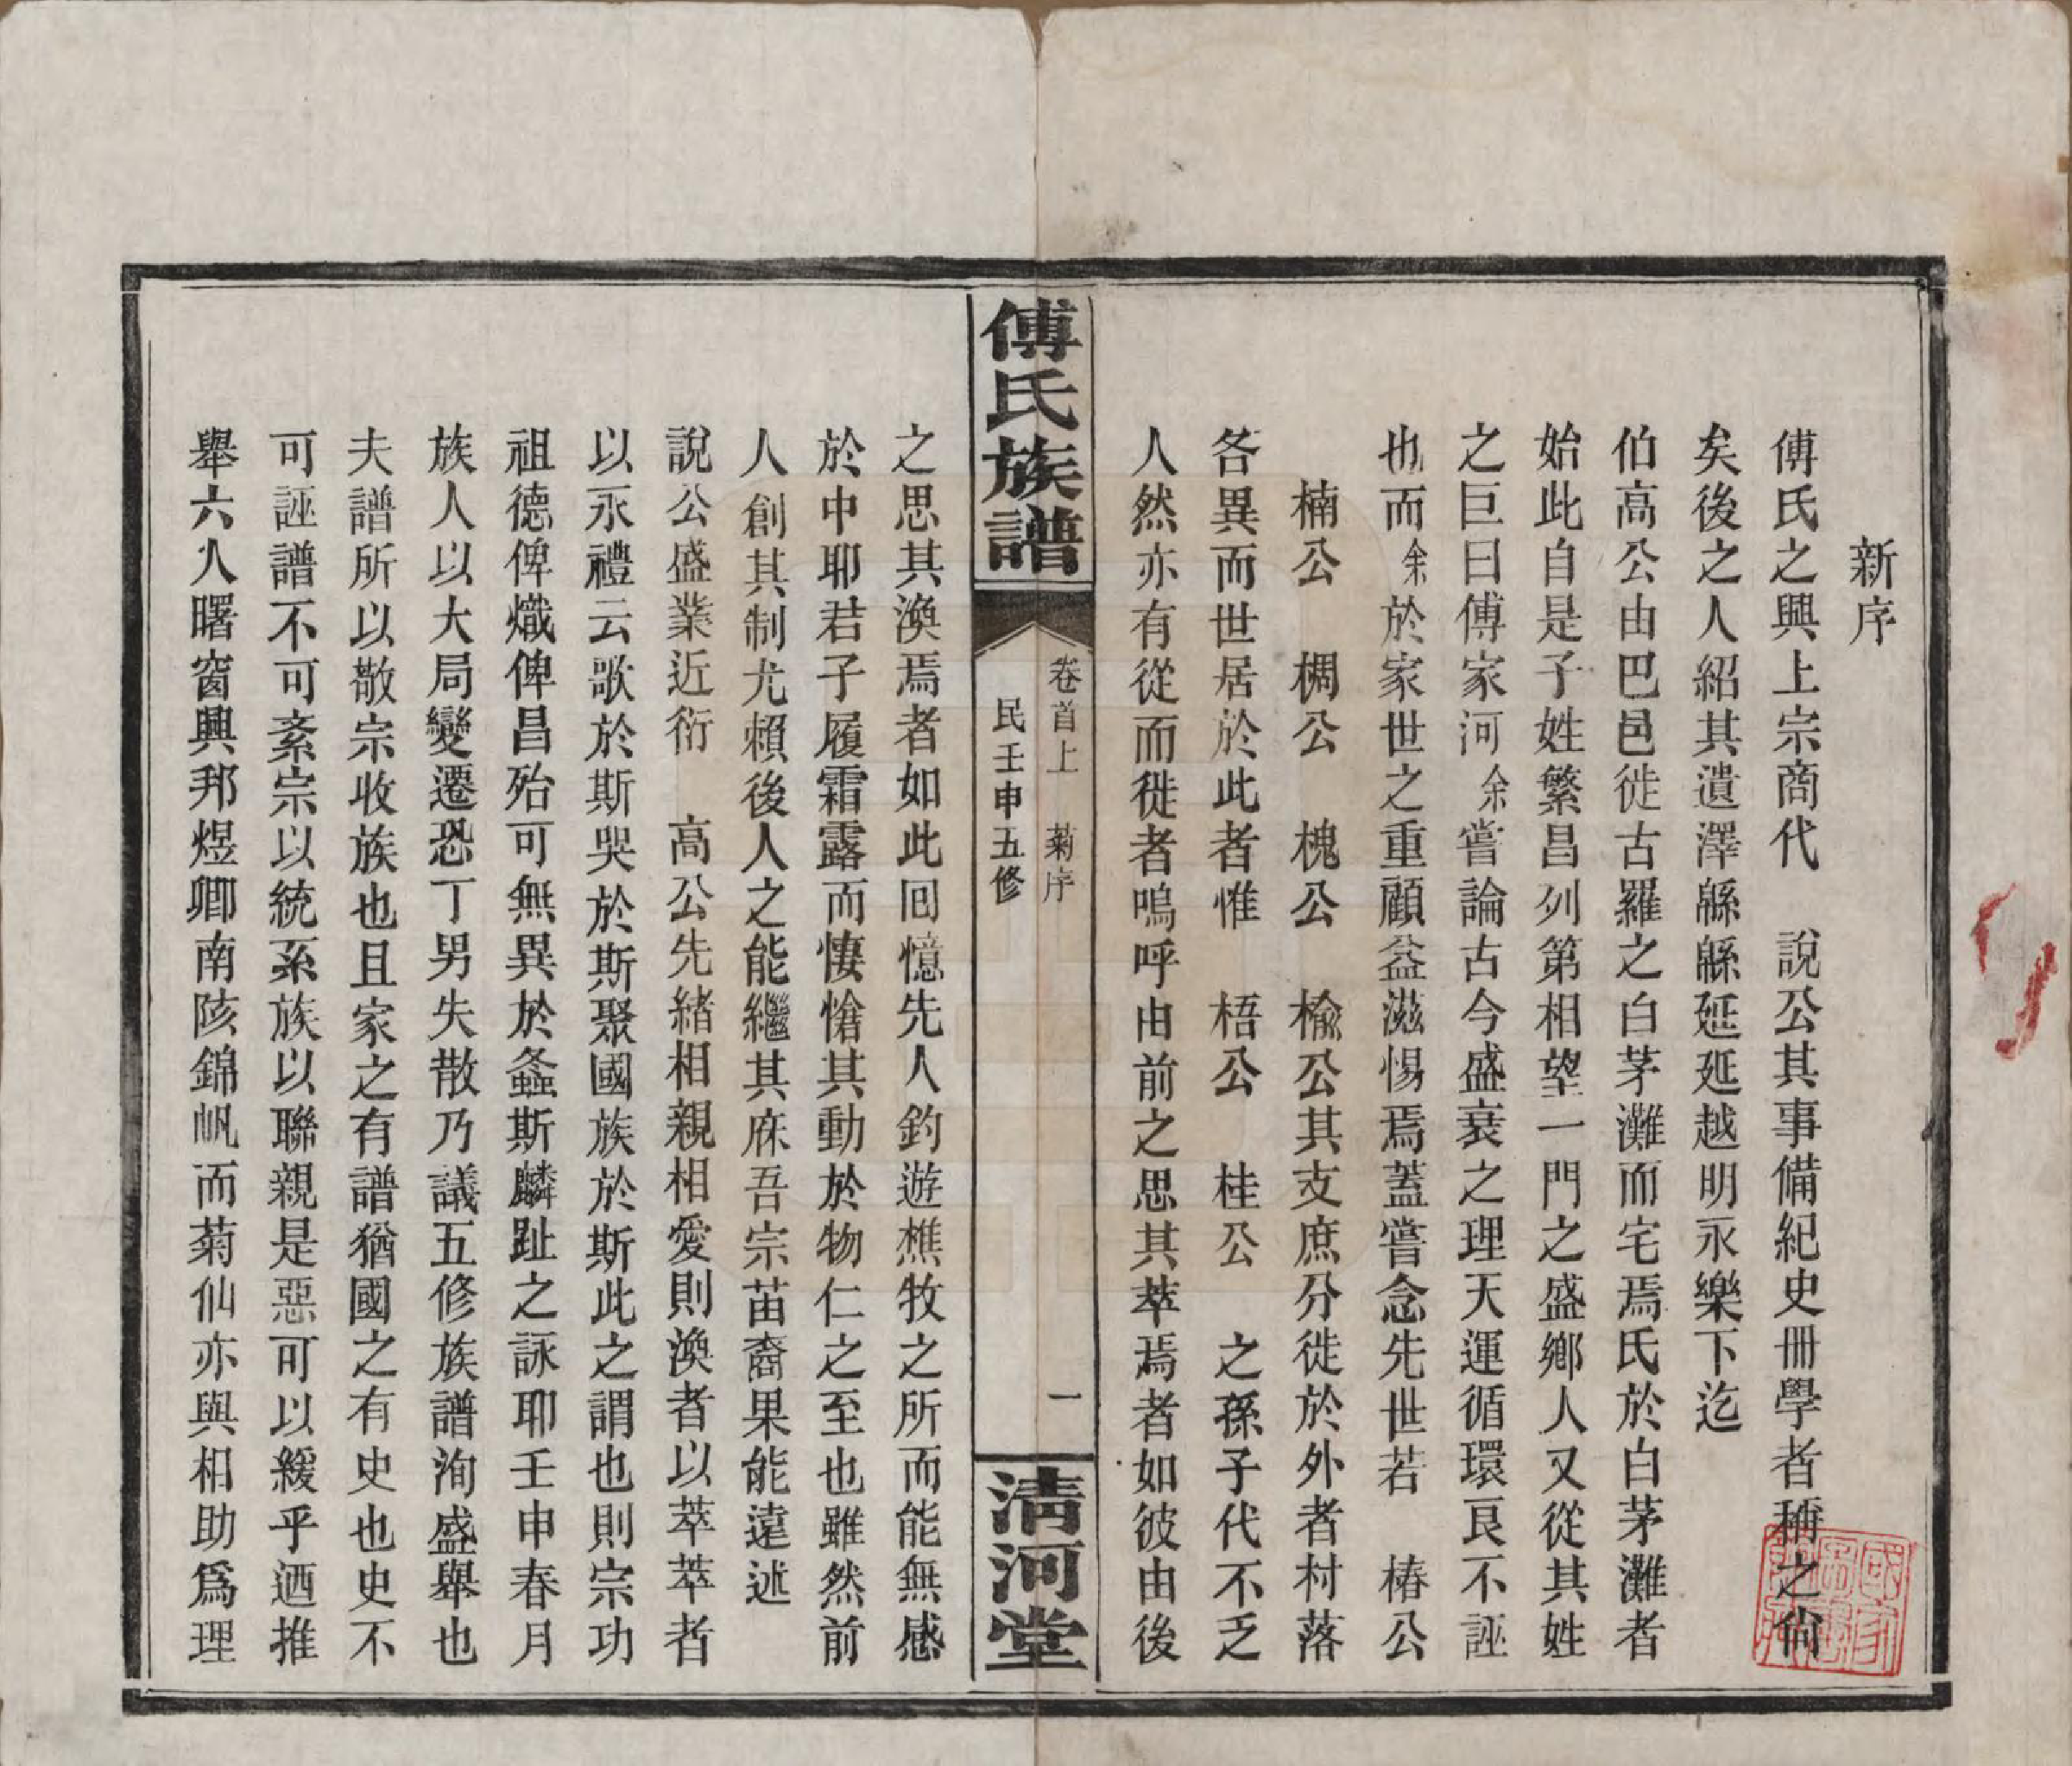 新序
傅氏之興上宗商代　說公其事備紀史冊學者稱之尙
矣後之人紹其遺澤緜緜延延越明永樂下迄
伯高公由巴邑徙古羅之白茅灘而宅焉氏於白茅灘者
始此自是子姓繁昌列第相望一門之盛鄉人又從其姓
之巨曰傅家河余嘗論古今盛衰之理天運循環良不誣
也而余於家世之重顧益滋惕焉蓋嘗念先世若　椿公
楠公　椆公　槐公　楡公其支庶分徙於外者村落
各異而世居於此者惟　梧公　桂公　之孫子代不乏
人然亦有從而徙者嗚呼由前之思其萃焉者如彼由後
傅氏族譜
卷首上　菊序　一
民壬申五修
淸河堂
之思其渙焉者如此囘憶先人釣遊樵牧之所而能無感
於中耶君子履霜露而悽愴其動於物仁之至也雖然前
人創其制尤賴後人之能繼其庥吾宗苗裔果能遠述
說公盛業近衍　高公先緒相親相愛則渙者以萃萃者
以永禮云歌於斯哭於斯聚國族於斯此之謂也則宗功
祖德俾熾俾昌殆可無異於螽斯麟趾之詠耶壬申春月
族人以大局變遷恐丁男失散乃議五修族譜洵盛舉也
夫譜所以敬宗收族也且家之有譜猶國之有史也史不
可誣譜不可紊宗以統系族以聯親是惡可以緩乎迺推
舉六人曙窗興邦煜卿南陔錦帆而菊仙亦與相助爲理